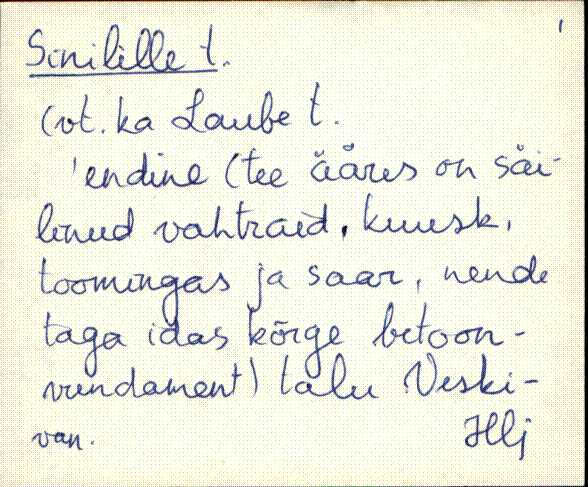 Sinilille t.
(vt. ka Laube t.
'endine (tee ääres on säi-
linud vahtraid, kuusk,
toomingas ja saar, nende
taga idas kõrge betoon-
vundament) talu Veski-
van. Hlj